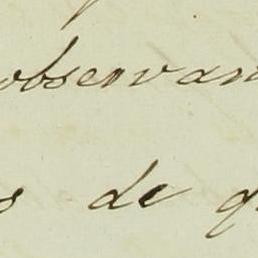 observan
s de q